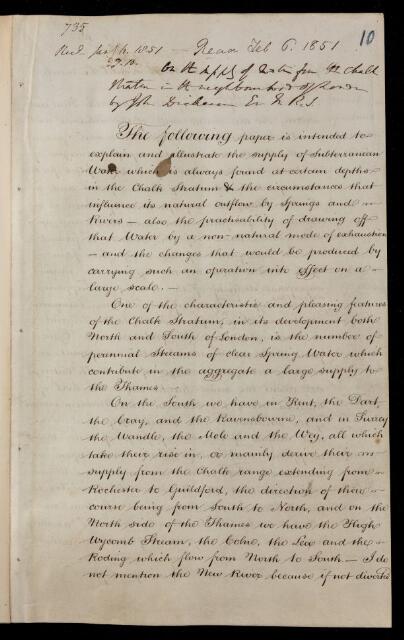 735
Recd Jany 6. 1851 — Read Feb 6. 1851
10
On the supply of Water from the Chalk
Stratum in the neighbourhood of London
by John Dickinson Esq F.R.S
The following paper is intended to
explain and illustrate the supply of Subterranean
Water which is always found at certain depths
in the Chalk Stratum & the circumstances that
influence its natural outflow by Springs and
Rivers — also the practicability of drawing off
that Water by a non-natural mode of exhaustion
— and the changes that would be produced by
carrying such an operation into effect on a
large scale. —
One of the characteristic and pleasing features
of the Chalk Stratum, in its development both
North and South of London, is the number of
perennial Streams of clear Spring Water which
contribute in the aggregate a large supply to
the Thames.
On the South we have in Kent, the Dart
the Cray, and the Ravensbourne, and in Surrey
the Wandle, the Mole and the Wey, all which
take their rise in, or mainly derive their
supply from the Chalk range extending from
Rochester to Guildford, the direction of their
course being from South to North, and on the
North side of the Thames we have the High
Wycomb Stream, the Colne, the Lea and the
Roding which flow from North to South — I do
not mention the New River because if not diverted